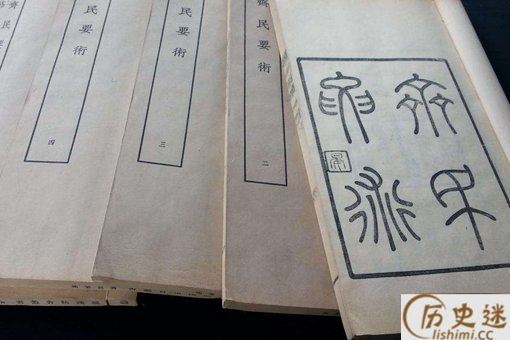 齊民
要術
齊民要術
二
民要術
三
民要術
四
历史迷
lishimi.cc